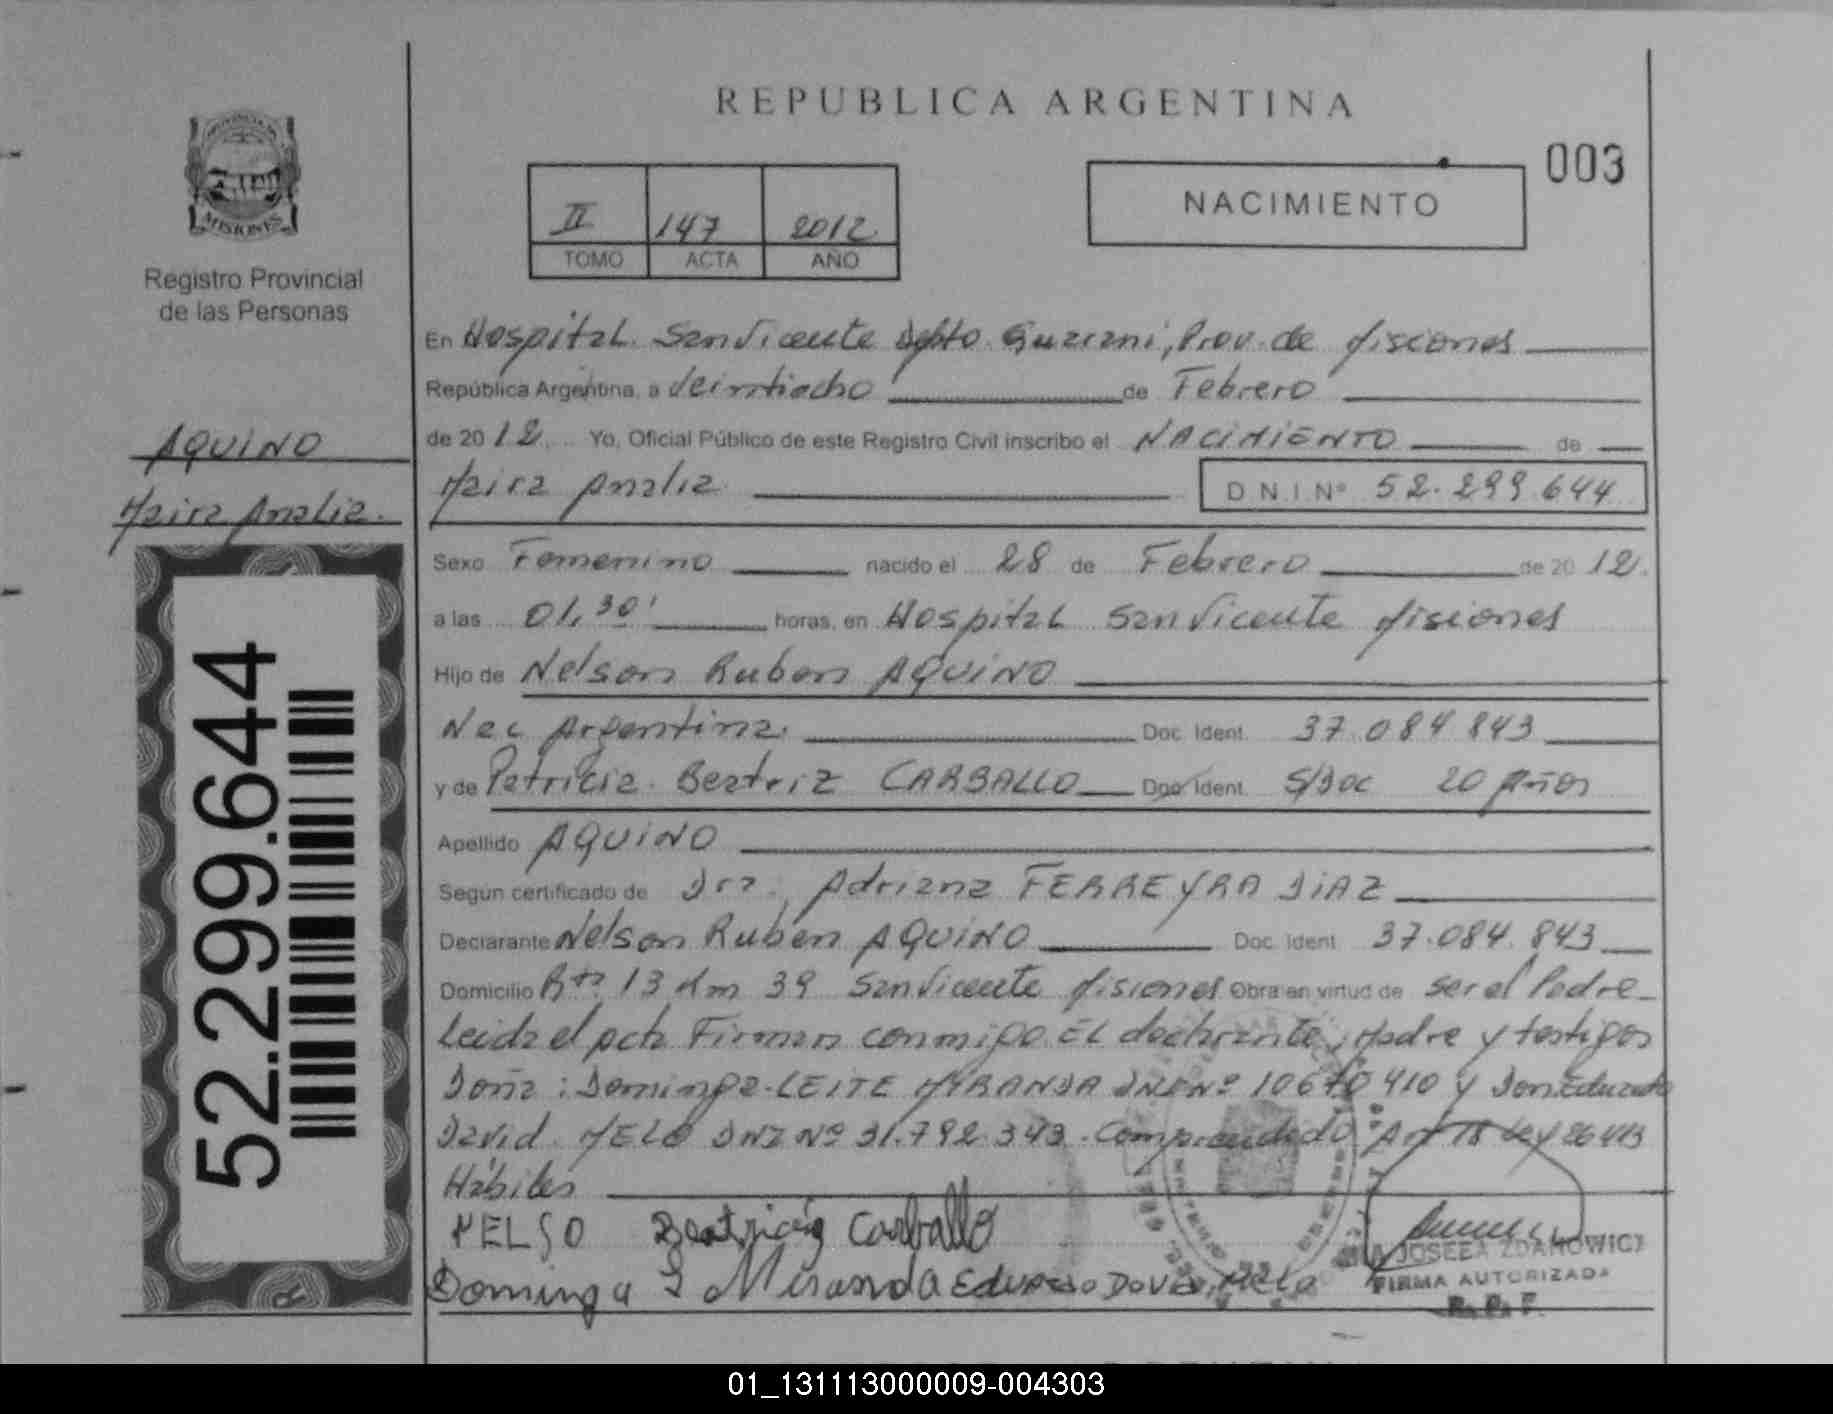 REPUBLICA ARGENTINA
003
NACIMIENTO
II 147 2012
TOMO ACTA AÑO
MISIONES
Registro Provincial
de las Personas
AQUINO
Maira Analia.
52.299.644
En Hospital San Vicente Dpto. Guarani, Prov. de Misiones
República Argentina, a Veintiocho de Febrero
de 20 12. Yo, Oficial Público de este Registro Civil inscribo el NACIMIENTO de
Maira Analia D N I Nº 52.299.644
Sexo Femenino nacido el 28 de Febrero de 20 12.
a las 01,30' horas, en Hospital San Vicente Misiones
Hijo de Nelson Ruben AQUINO
Nac Argentina. Doc. Ident. 37.084.843
y de Patricia Beatriz CARBALLO Doc Ident. S/Doc 20 Años
Apellido AQUINO
Según certificado de Dra. Adriana FERREYRA DIAZ
Declarante Nelson Ruben AQUINO Doc. Ident. 37.084.843
Domicilio Rta 13 Km 39 San Vicente Misiones Obra en virtud de ser el Padre
Leida el acta Firman conmigo El declarante, Madre y testigos
Doña: Dominga LEITE MIRANDA DNI Nº 10670410 y Don Eduardo
David MELO DNI Nº 31.792.343. Comprendido Art 18 Ley 26413
Hábiles
NELSO Beatriz Carballo
Dominga L Miranda Eduardo David Melo
JOSEFA ZDANOWICZ
FIRMA AUTORIZADA
R. P. P.
01_131113000009-004303